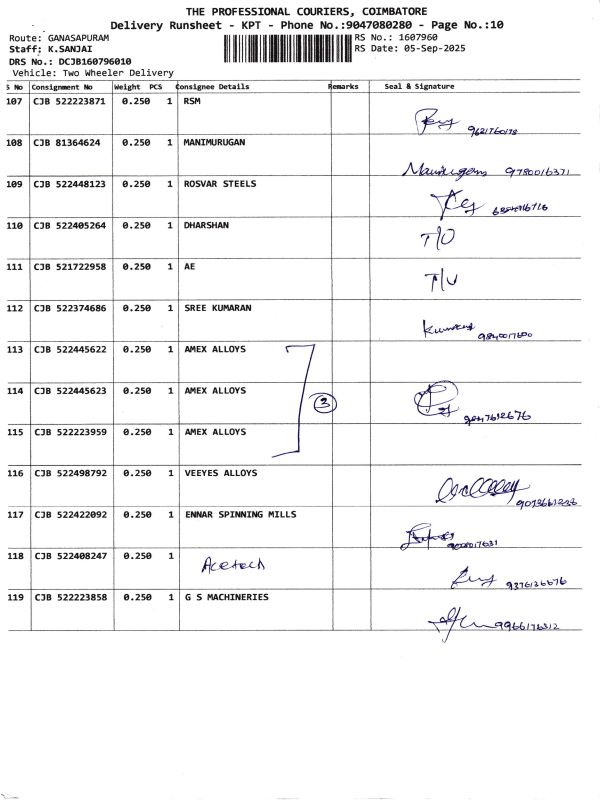 THE PROFESSIONAL COURIERS, COIMBATORE
Delivery Runsheet - KPT - Phone No.:9047080280 - Page No.:10
Route: GANASAPURAM RS No.: 1607960
Staff: K.SANJAI RS Date: 05-Sep-2025
DRS No.: DCJB160796010
Vehicle: Two Wheeler Delivery
S No Consignment No Weight PCS Consignee Details Remarks Seal & Signature
107 CJB 522223871 0.250 1 RSM
108 CJB 81364624 0.250 1 MANIMURUGAN
9780016371
109 CJB 522448123 0.250 1 ROSVAR STEELS
110 CJB 522405264 0.250 1 DHARSHAN
T/O
111 CJB 521722958 0.250 1 AE
112 CJB 522374686 0.250 1 SREE KUMARAN
113 CJB 522445622 0.250 1 AMEX ALLOYS
114 CJB 522445623 0.250 1 AMEX ALLOYS
3
115 CJB 522223959 0.250 1 AMEX ALLOYS
116 CJB 522498792 0.250 1 VEEYES ALLOYS
117 CJB 522422092 0.250 1 ENNAR SPINNING MILLS
118 CJB 522408247 0.250 1
Acetech
119 CJB 522223858 0.250 1 G S MACHINERIES